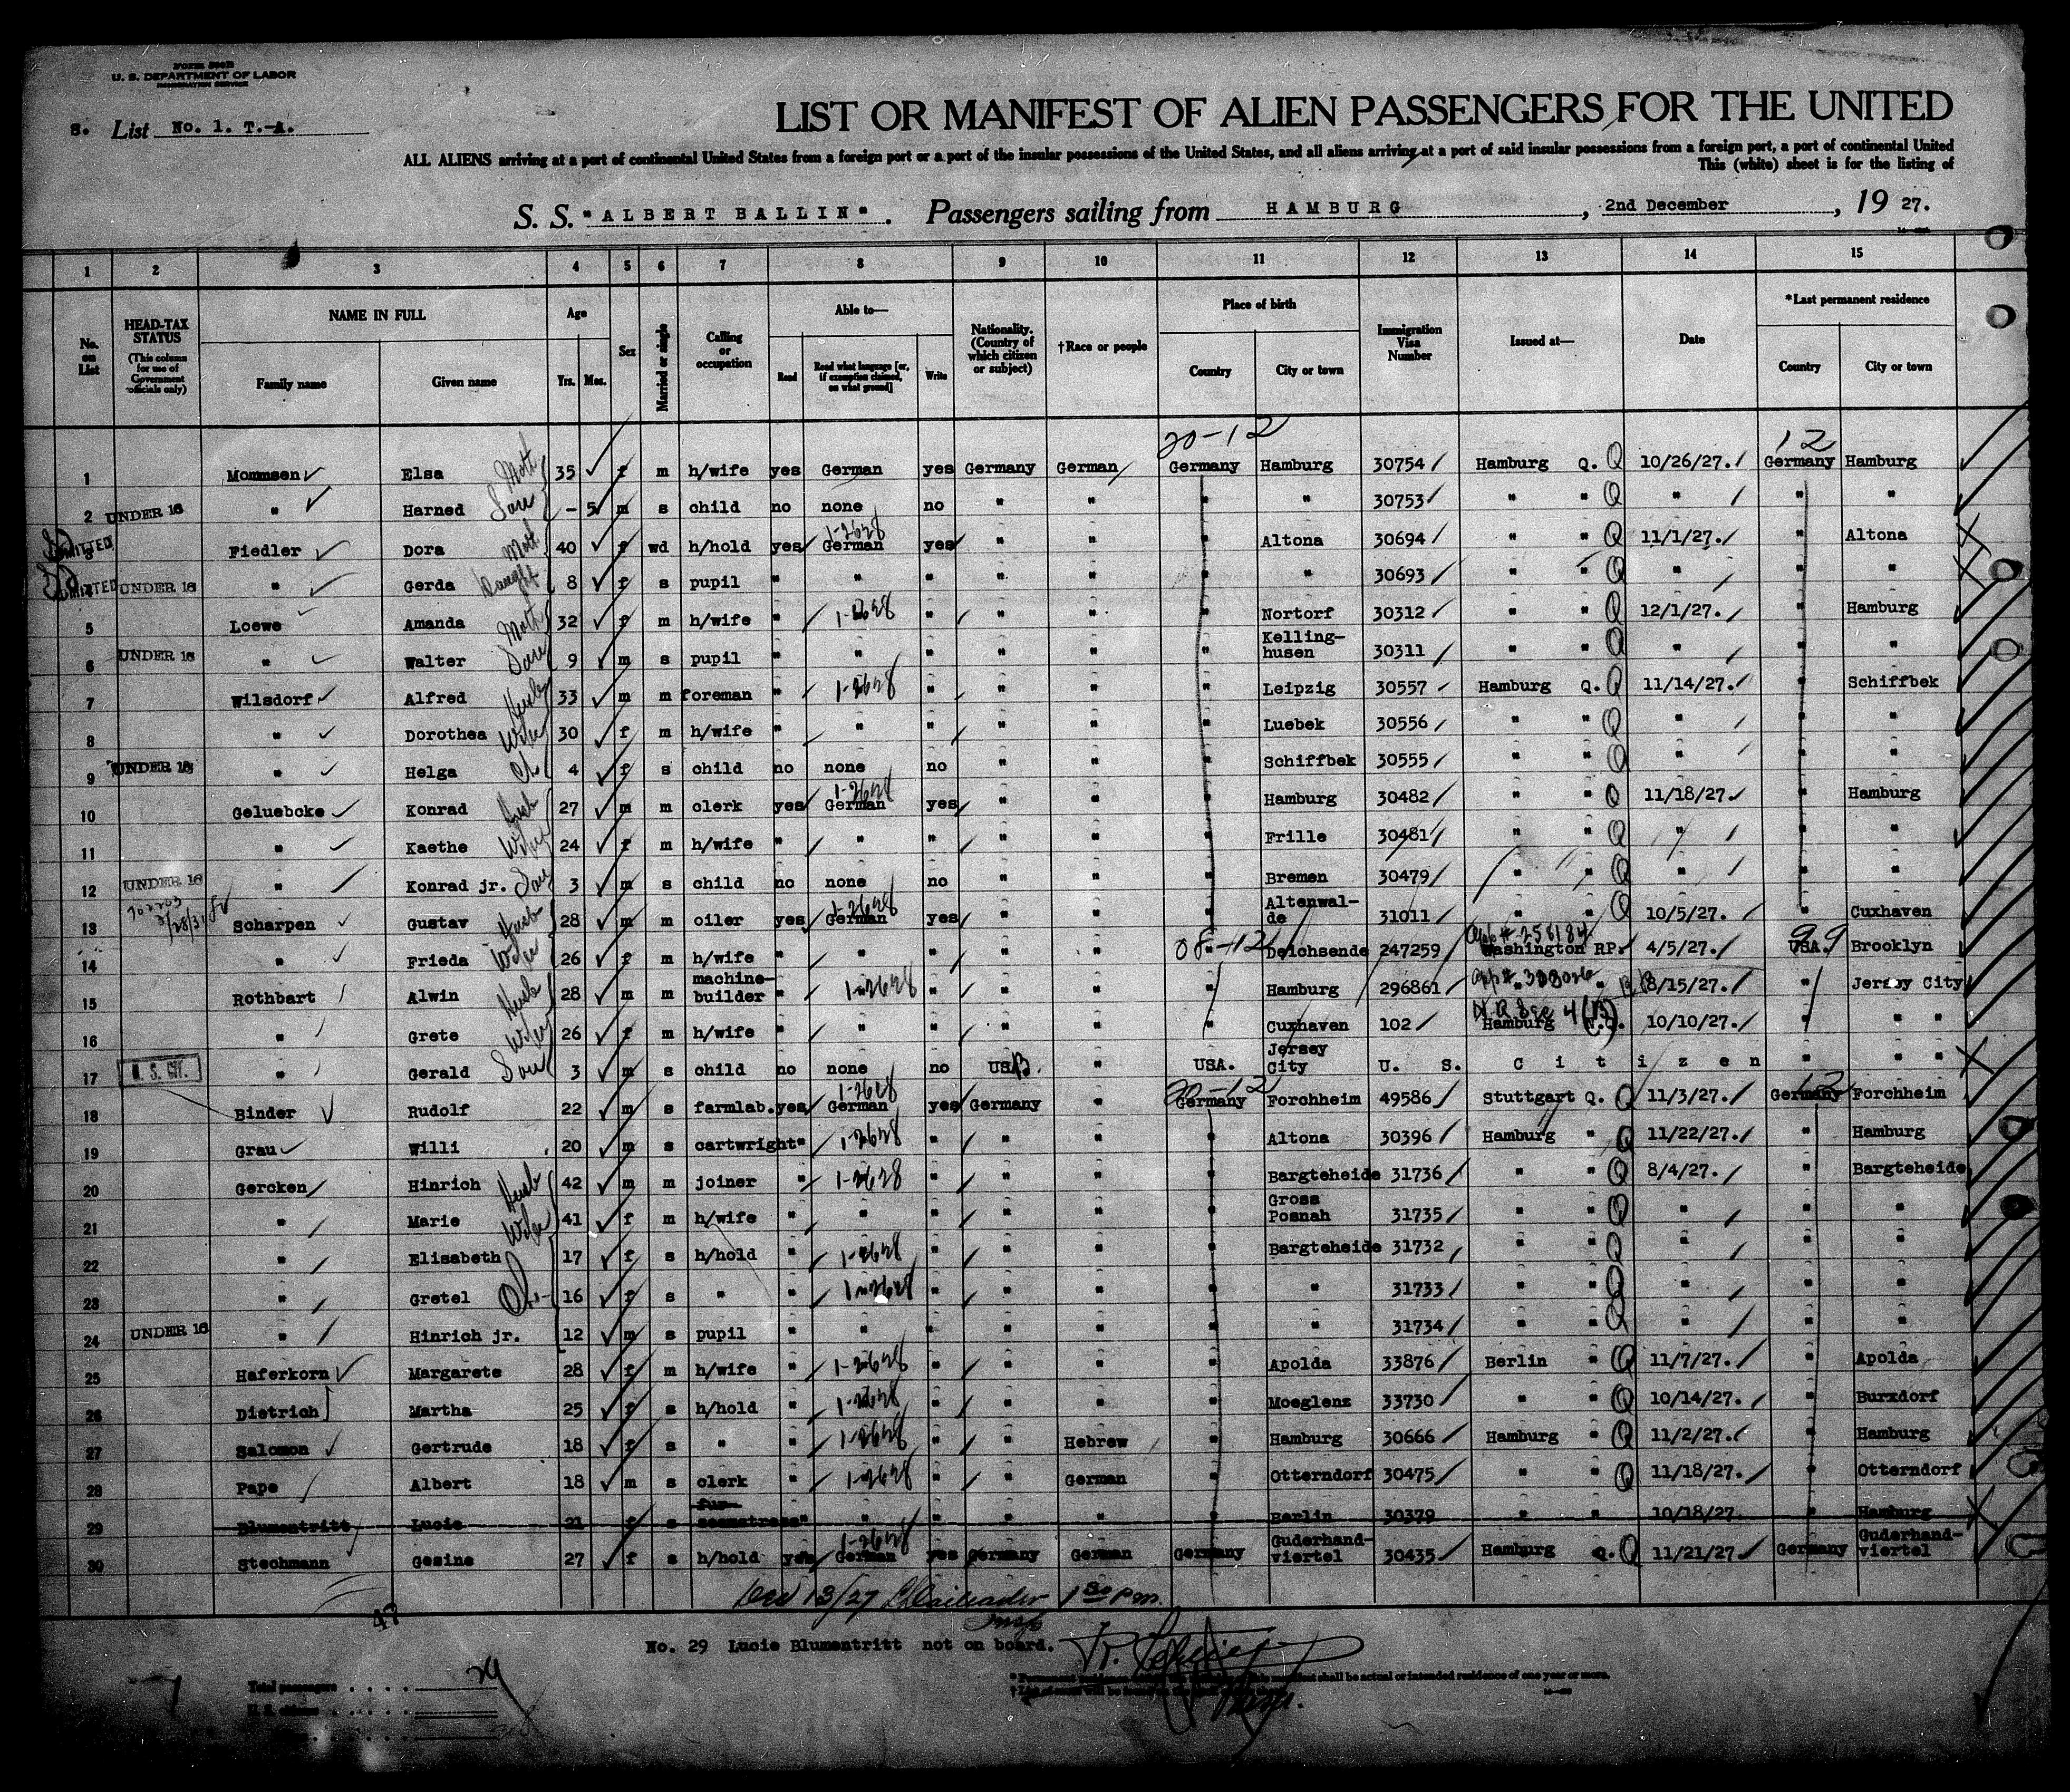 FORM 500B
U. S. DEPARTMENT OF LABOR
IMMIGRATION SERVICE
S. List No. 1. T.-A.
LIST OR MANIFEST OF ALIEN PASSENGERS FOR THE UNITED
ALL ALIENS arriving at a port of continental United States from a foreign port or a port of the insular possessions of the United States, and all aliens arriving at a port of said insular possessions from a foreign port, a port of continental United
This (white) sheet is for the listing of
S. S. "ALBERT BALLIN". Passengers sailing from HAMBURG, 2nd December, 19 27.
1 2 3 4 5 6 7 8 9 10 11 12 13 14 15
No. on List
HEAD-TAX STATUS (This column for use of Government officials only)
NAME IN FULL Family name Given name
Age Yrs. Mos.
Sex
Married or single
Calling or occupation
Able to— Read Read what language [or, if exemption claimed, on what ground] Write
Nationality. (Country of which citizen or subject)
†Race or people
Place of birth Country City or town
Immigration Visa Number
Issued at—
Date
*Last permanent residence Country City or town
20-12 12
1 Mommsen Elsa Moth 35 f m h/wife yes German yes Germany German Germany Hamburg 30754 Hamburg Q. Q 10/26/27. Germany Hamburg
2 UNDER 16 " Harned Son - 5 m s child no none no " " " " 30753 " " Q " " "
3 ADMITTED Fiedler Dora Moth 40 f wd h/hold yes German 1-2628 yes " " " Altona 30694 " " Q 11/1/27. " Altona
4 ADMITTED UNDER 16 " Gerda Daught 8 f s pupil " " " " " " " 30693 " " Q " " "
5 Loewe Amanda Moth 32 f m h/wife " 1-2628 " " " " Nortorf 30312 " " Q 12/1/27. " Hamburg
6 UNDER 16 " Walter Son 9 m s pupil " " " " " " Kelling-husen 30311 " " Q " " "
7 Wilsdorf Alfred Husb 33 m m foreman " 1-2628 " " " " Leipzig 30557 Hamburg Q. Q 11/14/27. " Schiffbek
8 " Dorothea Wife 30 f m h/wife " " " " " " Luebek 30556 " " Q " " "
9 UNDER 16 " Helga Ch 4 f s child no none no " " " Schiffbek 30555 " " Q " " "
10 Geluebcke Konrad Husb 27 m m clerk yes German 1-2628 yes " " " Hamburg 30482 " " Q 11/18/27 " Hamburg
11 " Kaethe Wife 24 f m h/wife " " " " " " Frille 30481 " " Q " " "
12 UNDER 16 " Konrad jr. Son 3 m s child no none no " " " Bremen 30479 " " Q " " "
13 Scharpen Gustav Husb 28 m m oiler yes German 1-2628 yes " " " Altenwal-de 31011 " " Q 10/5/27. " Cuxhaven
14 " Frieda Wife 26 f m h/wife " " " " " 08-12 " Deichsende 247259 App # 256184 Washington RP. 4/5/27. 99 USA. Brooklyn
15 Rothbart Alwin Husb 28 m m machine-builder " 1-2628 " " " " Hamburg 296861 App # 333026 " " 8/15/27. " Jersey City
16 " Grete Wife 26 f m h/wife " " " " " " Cuxhaven 102 N.Q. Sec 4 (B) Hamburg 10/10/27. " " "
17 U. S. CIT. " Gerald Son 3 m s child no none no USA. " USA. Jersey City U. S. Citizen " " "
18 Binder Rudolf 22 m s farmlab. yes German 1-2628 yes Germany " 20-12 Germany Forchheim 49586 Stuttgart Q. Q 11/3/27. 12 Germany Forchheim
19 Grau Willi 20 m s cartwright " 1-2628 " " " " Altona 30396 Hamburg " Q 11/22/27. " Hamburg
20 Gercken Hinrich Husb 42 m m joiner " 1-2628 " " " " Bargteheide 31736 " " Q 8/4/27. " Bargteheide
21 " Marie Wife 41 f m h/wife " " " " " " Gross Posnah 31735 " " Q " " "
22 " Elisabeth 17 f s h/hold " 1-2628 " " " " Bargteheide 31732 " " Q " " "
23 " Gretel Ch- 16 f s " " 1-2628 " " " " " 31733 " " Q " " "
24 UNDER 16 " Hinrich jr. 12 m s pupil " " " " " " " 31734 " " Q " " "
25 Haferkorn Margarete 28 f m h/wife " 1-2628 " " " " Apolda 33876 Berlin " Q 11/7/27. " Apolda
26 Dietrich Martha 25 f s h/hold " 1-2628 " " " " Moeglenz 33730 " " Q 10/14/27. " Burxdorf
27 Salomon Gertrude 18 f s " " 1-2628 " " Hebrew " Hamburg 30666 Hamburg " Q 11/2/27. " Hamburg
28 Pape Albert 18 m s clerk " 1-2628 " " German " Otterndorf 30475 " " Q 11/18/27. " Otterndorf
29 Blumentritt Lucie 21 f s fur-seamstress " " " " " " Berlin 30379 " " 10/18/27. " Hamburg
30 Stechmann Gesine 27 f s h/hold yes German 1-2628 yes Germany German Germany Guderhand-viertel 30435 Hamburg Q. Q 11/21/27 Germany Guderhand-viertel
Dec 13/27 1 30 P.m.
Insp
47
No. 29 Lucie Blumentritt not on board.
Total passengers . . . . 29
U. S. citizens . . . .
* Permanent residence within the meaning of this manifest shall be actual or intended residence of one year or more.